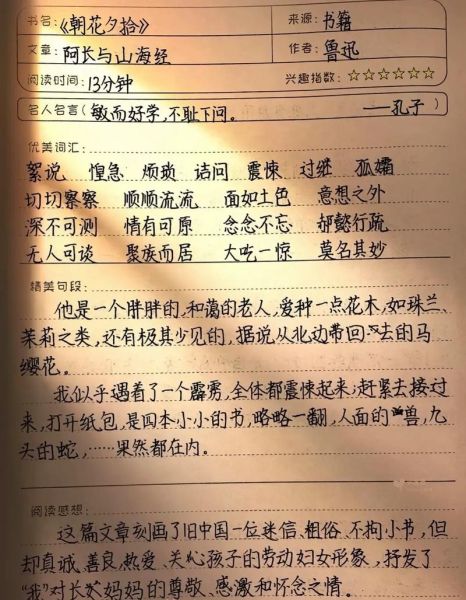 书名：《朝花夕拾》 来源：书籍
文章：阿长与山海经 作者：鲁迅
阅读时间：13分钟 兴趣指数：☆☆☆☆☆☆
名人名言（敏而好学，不耻下问。 ——孔子）
优美词汇：
絮说 惶急 烦琐 诘问 震悚 过继 孤孀
切切察察 顺顺流流 面如土色 意想之外
深不可测 情有可原 念念不忘 郝懿行疏
无人可谈 聚族而居 大吃一惊 莫名其妙
精美句段：
他是一个胖胖的，和蔼的老人，爱种一点花木，如珠兰、
茉莉之类，还有极其少见的，据说从北边带回去的马
缨花。
我似乎遇着了一个霹雳，全体都震悚起来；赶紧去接过
来，打开纸包，是四本小小的书，略略一翻，人面的兽，九
头的蛇，……果然都在内。
阅读感想：
这篇文章刻画了旧中国一位迷信、粗俗、不拘小节，但
却真诚、善良、热爱、关心孩子的劳动妇女形象，抒发了
“我”对长妈妈的尊敬、感激和怀念之情。